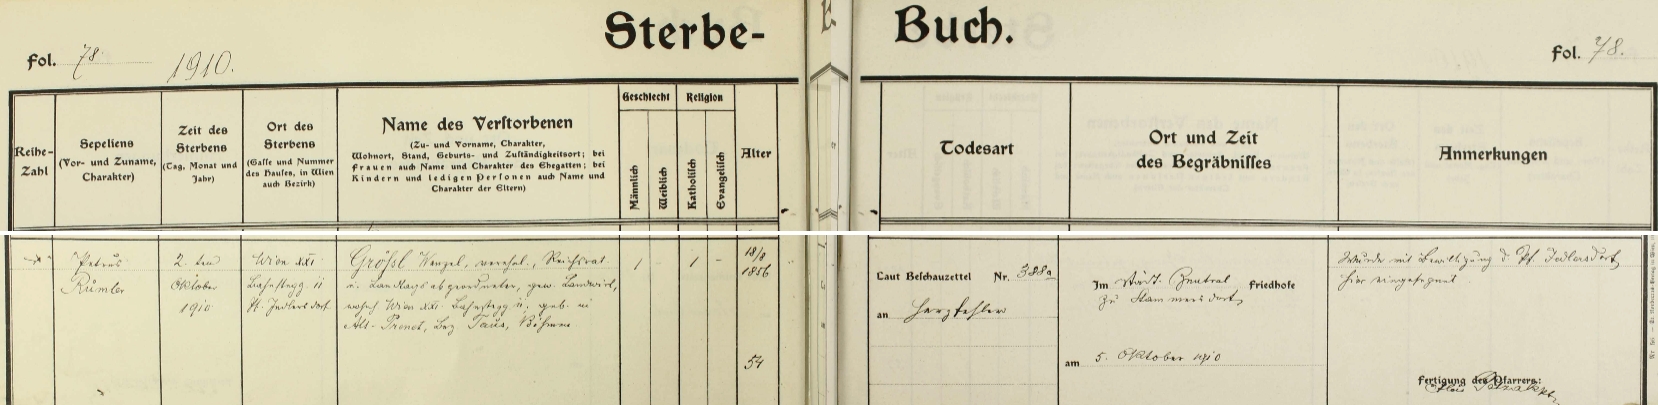 Sterbe- Buch.
Fol. 78
1910.
Fol. 78.
Reihe-
Zahl
Sepeliens
(Vor- und Zuname,
Charakter)
Zeit des
Sterbens
(Tag, Monat und
Jahr)
Ort des
Sterbens
(Gasse und Nummer
des Hauses, in Wien
auch Bezirk)
Name des Verstorbenen
(Zu- und Vorname, Charakter,
Wohnort, Stand, Geburts- und Zuständigkeitsort; bei
Frauen auch Name und Charakter des Ehegatten; bei
Kindern und ledigen Personen auch Name und
Charakter der Eltern)
Geschlecht
Männlich
Weiblich
Religion
Katholisch
Evangelisch
Alter
Todesart
Ort und Zeit
des Begräbnisses
Anmerkungen
Petrus
Rumler
2. ten
Oktober
1910
Wien XXI
Bahnstegg. 11
Pf. Jedlersdorf
Größl Wenzel, verehel., Reichsrat
u. Landtagsabgeordneter, gew. Landwirt,
wohnh. Wien XXI. Bahnstegg 11, geb. in
Alt- Prennet, Bez. Taus, Böhmen
1 - 1 -
18/8
1856
54
Laut Beschauzettel Nr. 388a
an Herzfehler
Im Städt. Zentral Friedhofe
zu Stammersdorf
am 5. Oktober 1910
Wurde mit Bewilligung d. Pf. Jedlersdorf
hier eingesegnet.
Fertigung des Pfarrers: